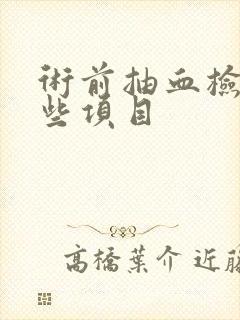 術前抽血檢
些項目
高橋葉介 近藤